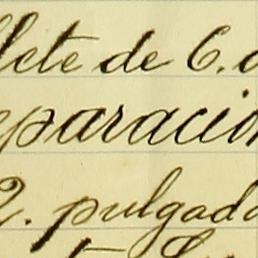 flete de 6. c
eparacion
2. pulgada